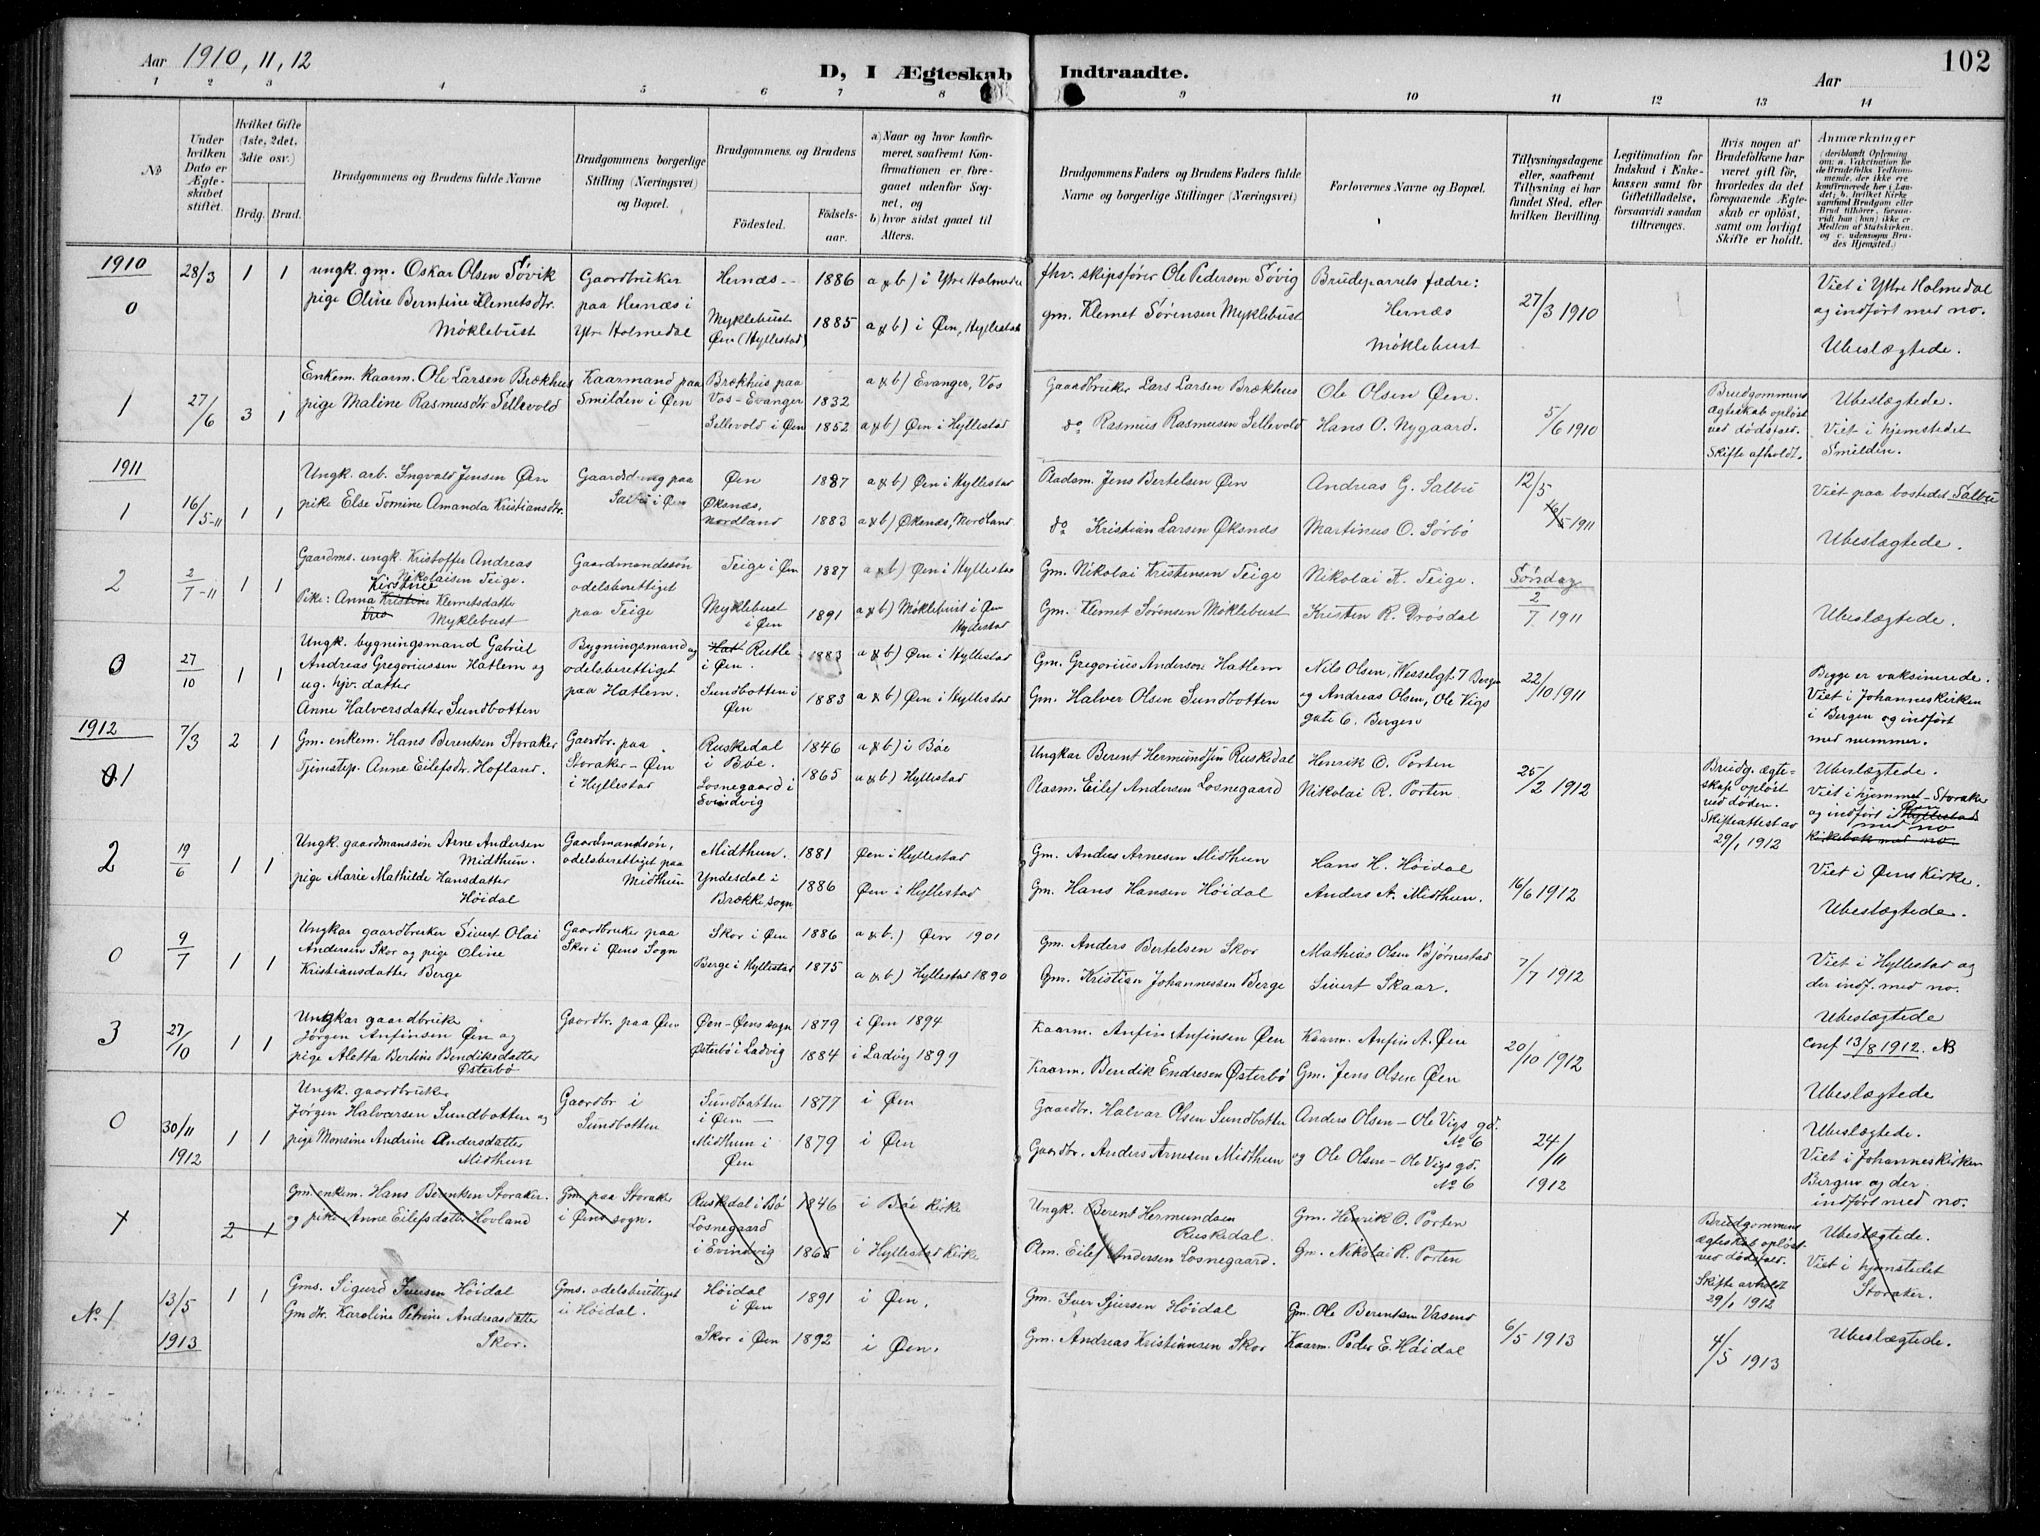 Aar 1910, 11, 12
D, I Ægteskab Indtraadte.
Aar
102
1 2 3 4 5 6 7 8 9 10 11 12 13 14
No
Under hvilken Dato er Ægteskabet stiftet.
Hvilket Gifte (1ste, 2det, 3die osv.)
Brdg. Brud.
Brudgommens og Brudens fulde Navne
Brudgommens borgerlige Stilling (Næringsvei) og Bopæl.
Brudgommens og Brudens
Fødested.
Fødselsaar.
a) Naar og hvor konfirmeret, saafremt Konfirmationen er foregaaet udenfor Sognet, og
b) hvor sidst gaaet til Alters.
Brudgommens Faders og Brudens Faders fulde Navne og borgerlige Stillinger (Næringsvei)
Forlovernes Navne og Bopæl.
Tillysningsdagene eller, saafremt Tillysning ei har fundet Sted, efter hvilken Bevilling.
Legitimation for Indskud i Enkekassen samt for Giftetilladelse, forsaavidt saadan tiltrænges.
Hvis nogen af Brudefolkene har været gift før, hvorledes da det foregaaende Ægteskab er opløst, samt om lovligt Skifte er holdt.
Anmærkninger (deriblandt Oplysning om: a. Vakcination for de Brudefolks Vedkommende, der ikke ere konfirmerede her i Landet; b. hvilket Kirkesamfund Brudgom eller Brud tilhører, forsaavidt han (hun) ikke er Medlem af Statskirken, og c. udensogns Brudes Hjemsted.)
1910
0 28/3 1 1
ungk. gm. Oskar Olsen Søvik
pige Oline Berntine Klemetsdtr.
Møklebust
Gaardbruker
paa Hernæs i
Ytr Holmedal
Hernæs -
Myklebust
Øen (Hyllestad)
1886
1885
a & b) i Ytre Holmedal
a & b) i Øen, Hyllestad
fhv. skipsfører Ole Pedersen Søvig
gm. Klemet Sørensen Myklebust
Brudeparrets fædre:
Hernæs
Møklebust
27/3 1910
Viet i Yttre Holmedal
og indført med no.
Ubeslægtede.
1 27/6 3 1
Enkem. kaarm. Ole Larsen Brækhus
pige Maline Rasmusdtr Sellevold
Kaarmand paa
Smilden i Øen
Brækhus paa
Vos - Evanger
Sellevold i Øen
1832
1852
a & b) Evanger, Vos
a & b) Øen i Hyllestad
Gaardbruker Lars Larsen Brækhus
do Rasmus Rasmusen Sellevold
Ole Olsen Øen.
Hans O. Nygaard.
5/6 1910
Brudgommens
ægteskab opløst
ved dødsfald.
Skifte afholdt.
Ubeslægtede.
Viet i hjemstedet
Smilden.
1911
1 16/5-11 1 1
Ungk. arb. Ingvald Jensen Øen
pike Else Tomine Amanda Kristiansdtr.
Salbu i Øen
Øen
Øksnæs,
Nordland
1887
1883
a & b) Øen i Hyllestad
a & b) Øksnæs, Nordland
Pladsm. Jens Bertelsen Øen
do Kristian Larsen Øksnæs
Andreas G. Salbu
Martinus O. Sørbø
12/5
1911
Viet paa bostedet Salbu
Ubeslægtede.
2 2/7-11 1 1
Gaardms. ungk. Kristoffer Andreas
Nikolaisen Teige.
Kirstine
Pike: Anna Kristine Klemetsdatter
Myklebust
Gaardmandssøn
odelsberettiget
paa Teige
Teige i Øen
Myklebust
i Øen
1887
1891
a & b) Øen i Hyllestad
a & b) Møklebust i Øen
Hyllestad
Gm. Nikolai Kristensen Teige
Gm. Klemet Sørensen Møklebust
Nikolai K. Teige.
Kristen R. Drøsdal
Søndag
2/7 1911
Ubeslægtede.
0 27/10 1 1
Ungk. bygningsmand Gabriel
Andreas Gregoriussen Hatlem og
ug. hjv. datter
Anne Halversdatter Sundbotten
Bygningsmand og
odelsberettiget
paa Hatlem.
Hat Rutle
i Øen.
Sundbotten i
Øen
1883
1883
a & b) Øen i Hyllestad
a & b) Øen i Hyllestad
Gm. Gregorius Anderson Hatlem
Gm. Halver Olsen Sundbotten
Nils Olsen, Wesselgt. 7 Bergen
og Andreas Olsen, Ole Vigs
gate 6. Bergen
22/10 1911
Begge er vaksinerede.
Viet i Johanneskirken
i Bergen og indført
med nummer.
1912
01 7/3 2 1
Gm. enkem. Hans Berentsen Storaker
Tjenstep. Anne Eilefsdtr. Hofland.
Gaardbr. paa
Storaker - Øen
i Hyllestad
Ruskedal
i Bøe.
Losnegaard i
Evindvig
1846
1865
a & b) i Bøe
a & b) Hyllestad
Ungkar Berent Hermundsen Ruskedal
Rasm. Eilef Andersen Losnegaard
Henrik O. Porten
Nikolai R. Porten
25/2 1912
Brudg. ægteskap opløst
ved døden.
Skifteattest av
29/1 1912
Ubeslægtede.
Viet i hjemmet - Storaker
og indført i Hyllestad Øen
med no
kirkebok med no.
2 19/6 1 1
Ungk. gaardmanssøn Arne Andersen
Midthun.
pige Marie Mathilde Hansdatter
Høidal
Gaardmandsøn,
odelsberettiget paa
Midthun
Midthun.
Yndesdal i
Brække, sogn
1881
1886
Øen i Hyllestad
Øen i Hyllestad
Gm. Anders Arnesen Midthun
Gm. Hans Hansen Høidal
Hans H. Høidal
Anders A. Midthun.
16/6 1912
Viet i Øens Kirke.
Ubeslægtede.
0 9/7 1 1
Ungkar gaardbruker Sivert Olai
Andersen Skor og pige Oline
Kristiansdatter Berge
Gaardbruker paa
Skor i Øens Sogn
Skor i Øen
Berge i Hyllestad
1886
1875
a & b.) Øen 1901
a & b) Hyllestad 1890
Gm. Anders Bertelsen Skor
Gm. Kristian Johannessen Berge
Mathias Olsen Bjørnestad
Sivert Skaar.
7/7 1912
Viet i Hyllestad og
der indf. med no.
Ubeslægtede
3 27/10 1 1
Ungkar gaardbruke
Jørgen Anfinsen Øen og
pige Aletta Bertine Bendiksdatter
Østerbø
Gaardbr. paa Øen
Øen - Øens sogn
Østerbø i Ladvig
1879
1884
i Øen 1894
i Ladvig 1899
Kaarm. Anfin Anfinsen Øen
Kaarm. Bendik Endresen Østerbø
Kaarm. Anfin A. Øen
Gm. Jens Olsen Øen
20/10 1912
Conf 13/8 1912. NB
Ubeslægtede
0 30/11 1912 1 1
Ungk. gaardbruker
Jørgen Halvorsen Sundbotten og
pige Monsine Andrine Andersdatter
Midthun
Gaardbr i
Sundbotten
Sundbotten
i Øen -
Midthun i
Øen
1877
1879
i Øen
i Øen
Gaardbr. Halvar Olsen Sundbotten
Gaardbr. Anders Arnesen Midthun
Anders Olsen - Ole Vigs gd.
No 6
og Ole Olsen - Ole Vigs gd.
No 6
24/11
1912
Ubeslægtede.
Viet i Johanneskirken
Bergen og der
indført med no.
2 1
Gm. enkem. Hans Berentsen Storaker.
og pike Anne Eilefsdatter Hovland
Gm. paa Storaker
i Øens sogn.
Ruskedal i Bø
Losnegaard
i Evindvig
1846
1865
i Bøe kirke
i Hyllestad Kirke
Ungk. Berent Hermundsen
Ruskedal.
Plm. Eilef Andersen Losnegaard.
Gm. Henrik O. Porten
Gm. Nikolai R. Porten
Brudgommens
ægteskab opløst
ved dødsfald.
Skifte avholdt
29/1 1912
Ubeslægtede.
Viet i hjemstedet
Storaker.
No. 1 13/5 1913 1 1
Gms. Sigurd Iversen Høidal
Gm dtr. Karoline Petrine Andreasdatter
Skor.
Gms. odelsberettiget
i Høidal.
Høidal
i Øen
Skor i Øen
1891
1892
i Øen.
i Øen.
Gm. Iver Sjursen Høidal
Gm. Andreas Kristiansen Skor
Gm. Ole Berentsen Vasend
Kaarm. Peder E. Høidal
6/5 1913
4/5 1913
Ubeslægtede.